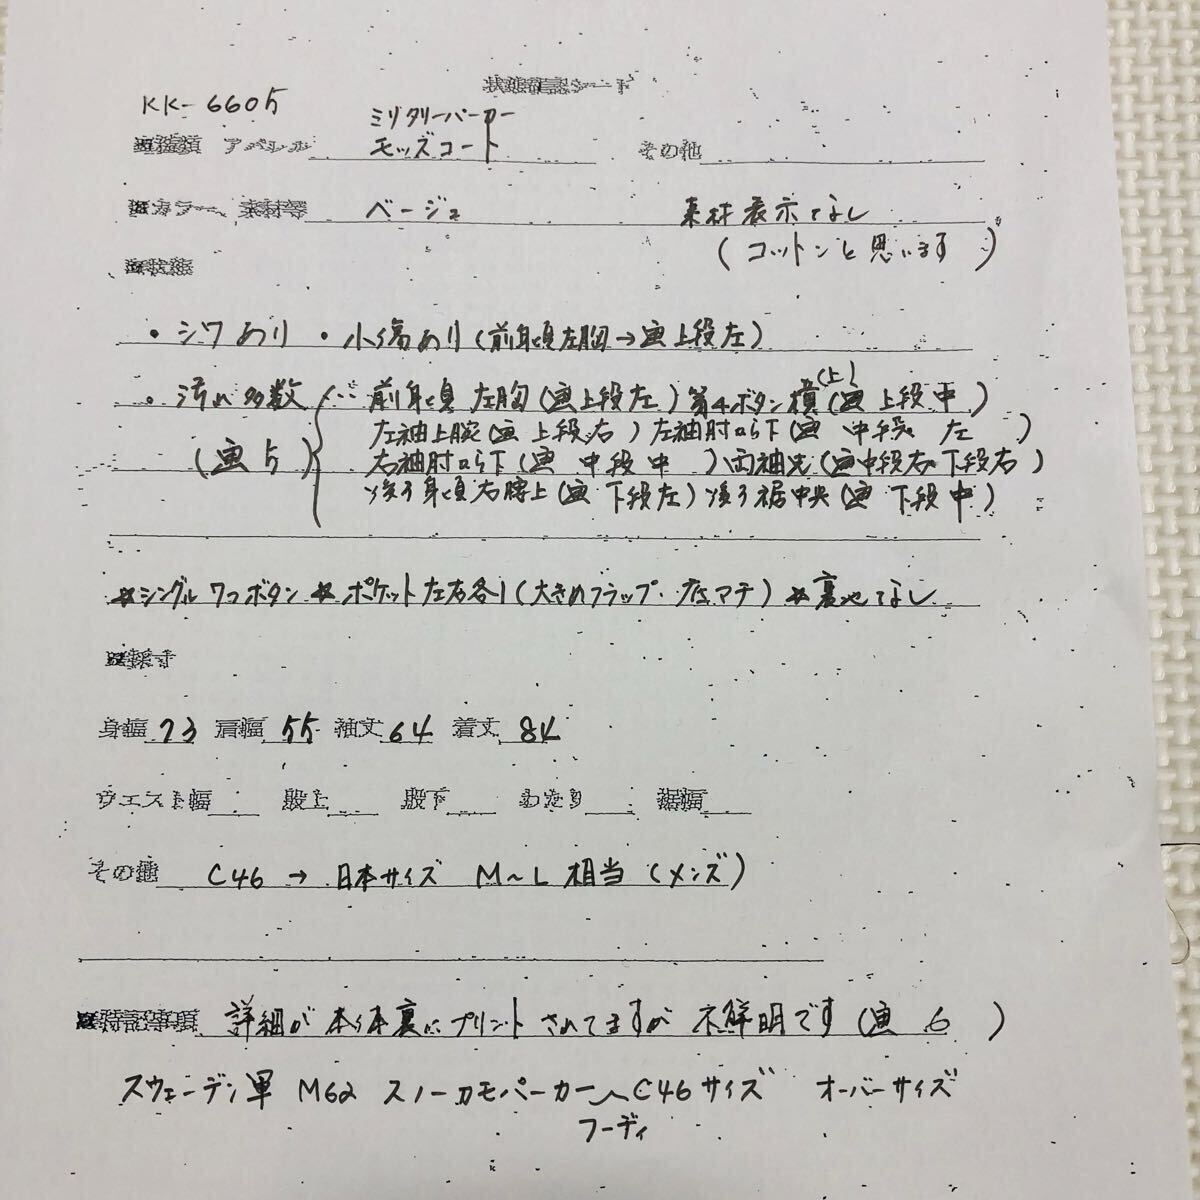 状態確認シート
KK-6605
ミリタリーパーカー
■種類 アパレル モッズコート その他
■カラー、素材等 ベージュ 素材表示なし
(コットンと思います)
■状態
・シワあり ・小傷あり(前身頃左胸→画上段左)
・汚れ多数 … 前身頃 左胸(画上段左) 第4ボタン横(上)(画上段中)
左袖上腕(画 上段右) 左袖肘から下(画 中段 左)
(画5) 右袖肘から下(画 中段中) 両袖先(画中段右・下段右)
後ろ身頃右腰上(画 下段左) 後ろ裾中央(画 下段中)
*シングル7つボタン *ポケット左右各1(大きめフラップ・底マチ) *裏地なし
■採寸
身幅 73 肩幅 55 袖丈 64 着丈 84
ウエスト幅 股上 股下 わたり 裾幅
その他 C46 → 日本サイズ M〜L 相当 (メンズ)
■特記事項 詳細が本体裏にプリントされてますが 不鮮明です(画 6)
スウェーデン軍 M62 スノーカモパーカー C46サイズ オーバーサイズ
フーディ